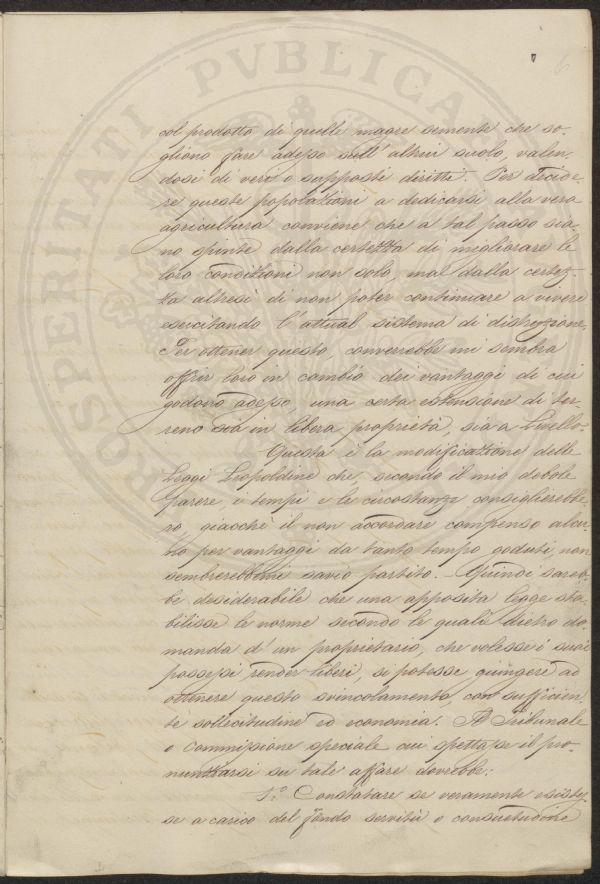 6
col prodotto di quelle magre sementi che so-
gliono fare adesso sull' altrui suolo, valen-
dosi di veri o supposti diritti. Per decide-
re queste popolazioni a dedicarsi alla vera
agricoltura conviene che a tal passo sia-
no spinte dalla certezza di migliorare le
loro condizioni non solo, ma dalla certez-
za altresì di non poter continuare a vivere
esercitando l'attual sistema di distruzione.
Per ottener questo, converrebbe mi sembra
offrir loro in cambio dei vantaggi di cui
godono adesso, una certa estensione di ter-
reno sia in libera proprietà, sia a Livello.
Questa è la modificazione delle
Leggi Leopoldine che, secondo il mio debole
parere, i tempi e le circostanze consiglierebbe-
ro, giacchè il non accordare compenso alcu-
no per vantaggi da tanto tempo goduti, non
sembrerebbemi savio partito. Quindi sareb-
be desiderabile che una apposita legge sta-
bilisse le norme secondo le quali dietro do-
manda d' un proprietario, che volesse i suoi
possessi render liberi, si potesse giungere ad
ottenere questo svincolamento, con sufficien-
te sollecitudine ed economia. Il Tribunale
o Commissione speciale cui spettasse il pro-
nunziarsi su tale affare dovrebbe:
1.° Constatare se veramente esistes-
se a carico del fondo servitù o consuetudine
PROSPERITATI PVBLICAE